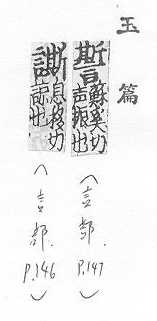 玉篇
蘇奚切
声振也
(言部. P.147)
息移切
諒也
(言部. P.146)